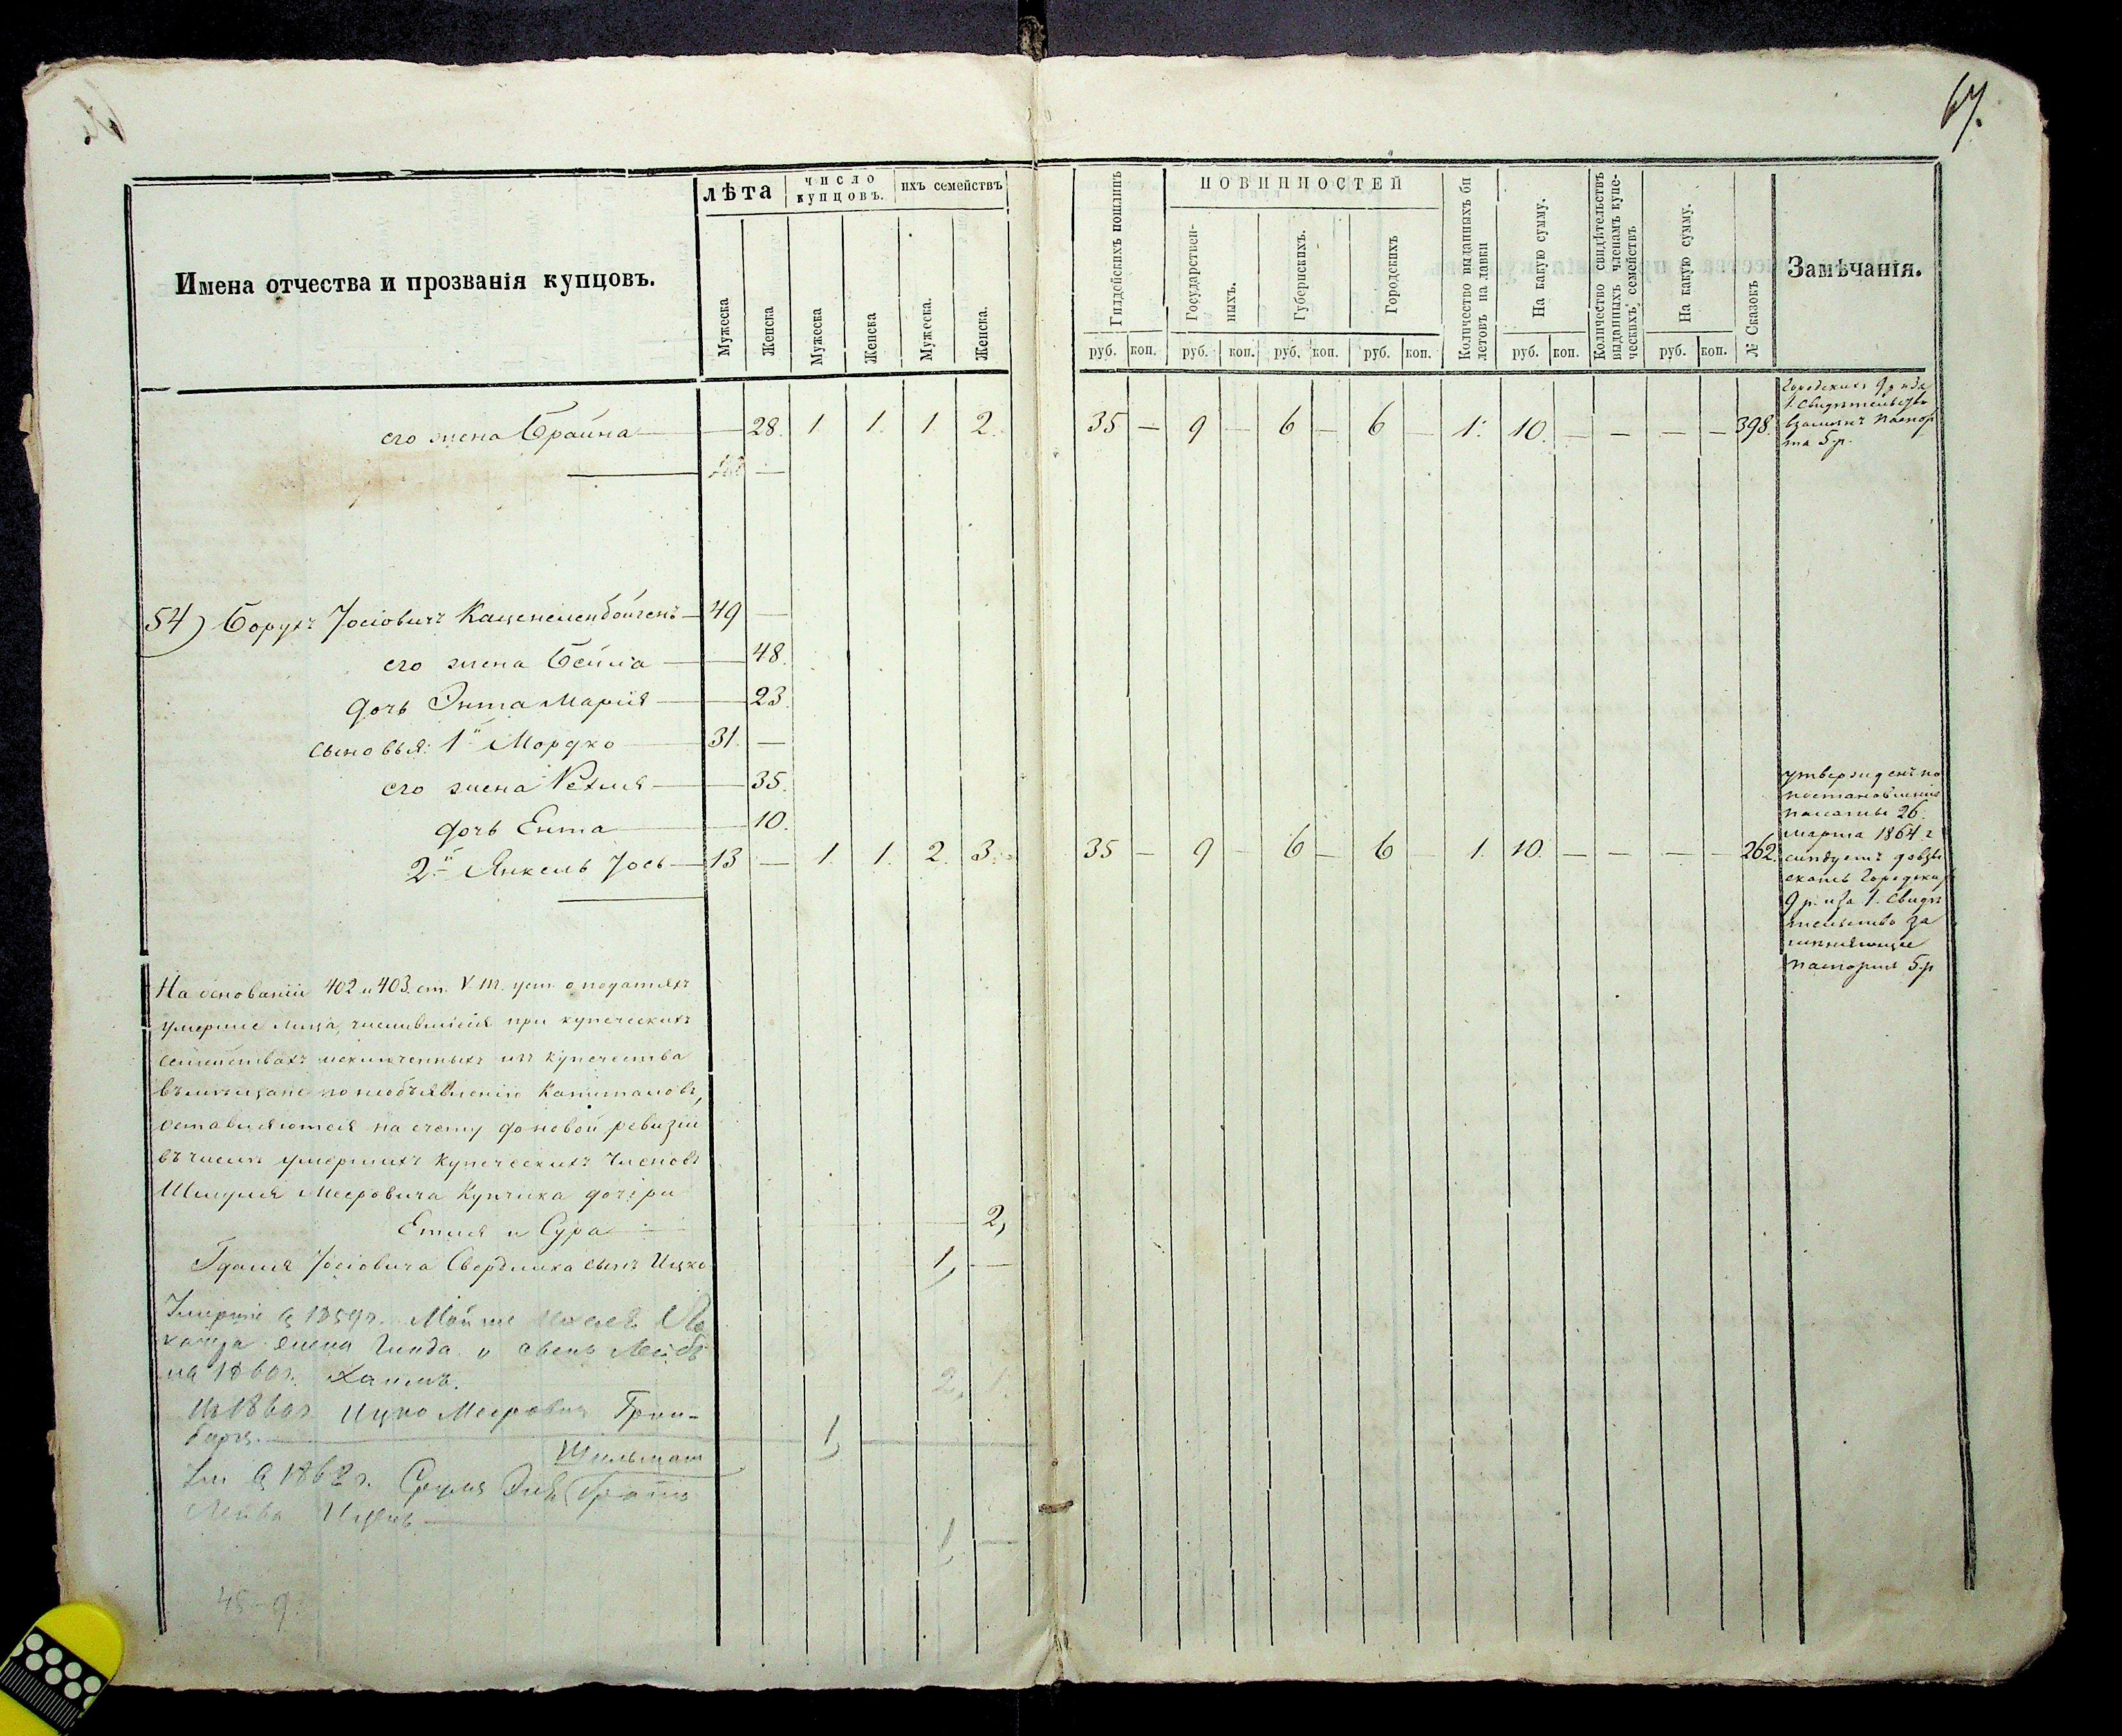 67.
Имена отчества и прозванія купцовъ.
лѣта
число купцовъ.
ихъ семействъ
Мужеска
Женска
Мужеска
Женска
Мужеска.
Женска.
Гилдейскихъ пошлинъ
ПОВИННОСТЕЙ
Государствен-
ныхъ.
Губернскихъ.
Городскихъ
Количество выданныхъ би
летовъ на лавки
На какую сумму.
Количество свидѣтельствъ
выданныхъ членамъ купе-
ческихъ семействъ
На какую сумму.
№ Сказокъ
Замѣчанія.
руб. коп. руб. коп. руб. коп. руб. коп. руб. коп. руб. коп.
его жена Брайна — — 28. 1 1. 1 2. 35 — 9 — 6 — 6 — 1. 10. — — — — 398
Городскихъ 9 р и за
1. Свидѣтельство
взаменъ паспор
та 5 р.
54) Борухъ Іосіовичъ Каценеленбойгенъ — 49 —
его жена Бейла — — 48.
дочь Энта Марія — — 23.
сыновья: 1й Мордко — 31. —
его жена Рехля — — 35.
дочь Ента — — 10.
2й Янкель Іось — 13 — 1. 1. 2. 3. 35 — 9 — 6 — 6 — 1. 10. — — — — 262.
утвержденъ по
постановленію
палаты 26.
марта 1864 г
слѣдуетъ довзы
скать Городских
9 р. и за 1. Свидѣ
тельство за
паспорта 5 р
На основаніи 402 и 403. ст. V т. уст. о податяхъ
умершие лица, числившіеся при купеческихъ
семействахъ исключенныхъ изъ купечества
въ мѣщане по необъявленію Капиталовъ,
оставляются на счету до новой ревизіи
въ числѣ умершихъ купеческихъ Членовъ
Шмуля Мееровича Купчика дочери
Етля и Сура — 2,
Гдаля Іосіовича Свердлика сынъ Ицко 1, —
Умершіе в 1859 г. Мойше
жена Гинда и
на 1860 г. Хаимъ. 2, 1.
Ицко Мееровича Грин-
барга. — 1,
Шильман
в 1862 г. Сруля
Лейба — 1, —